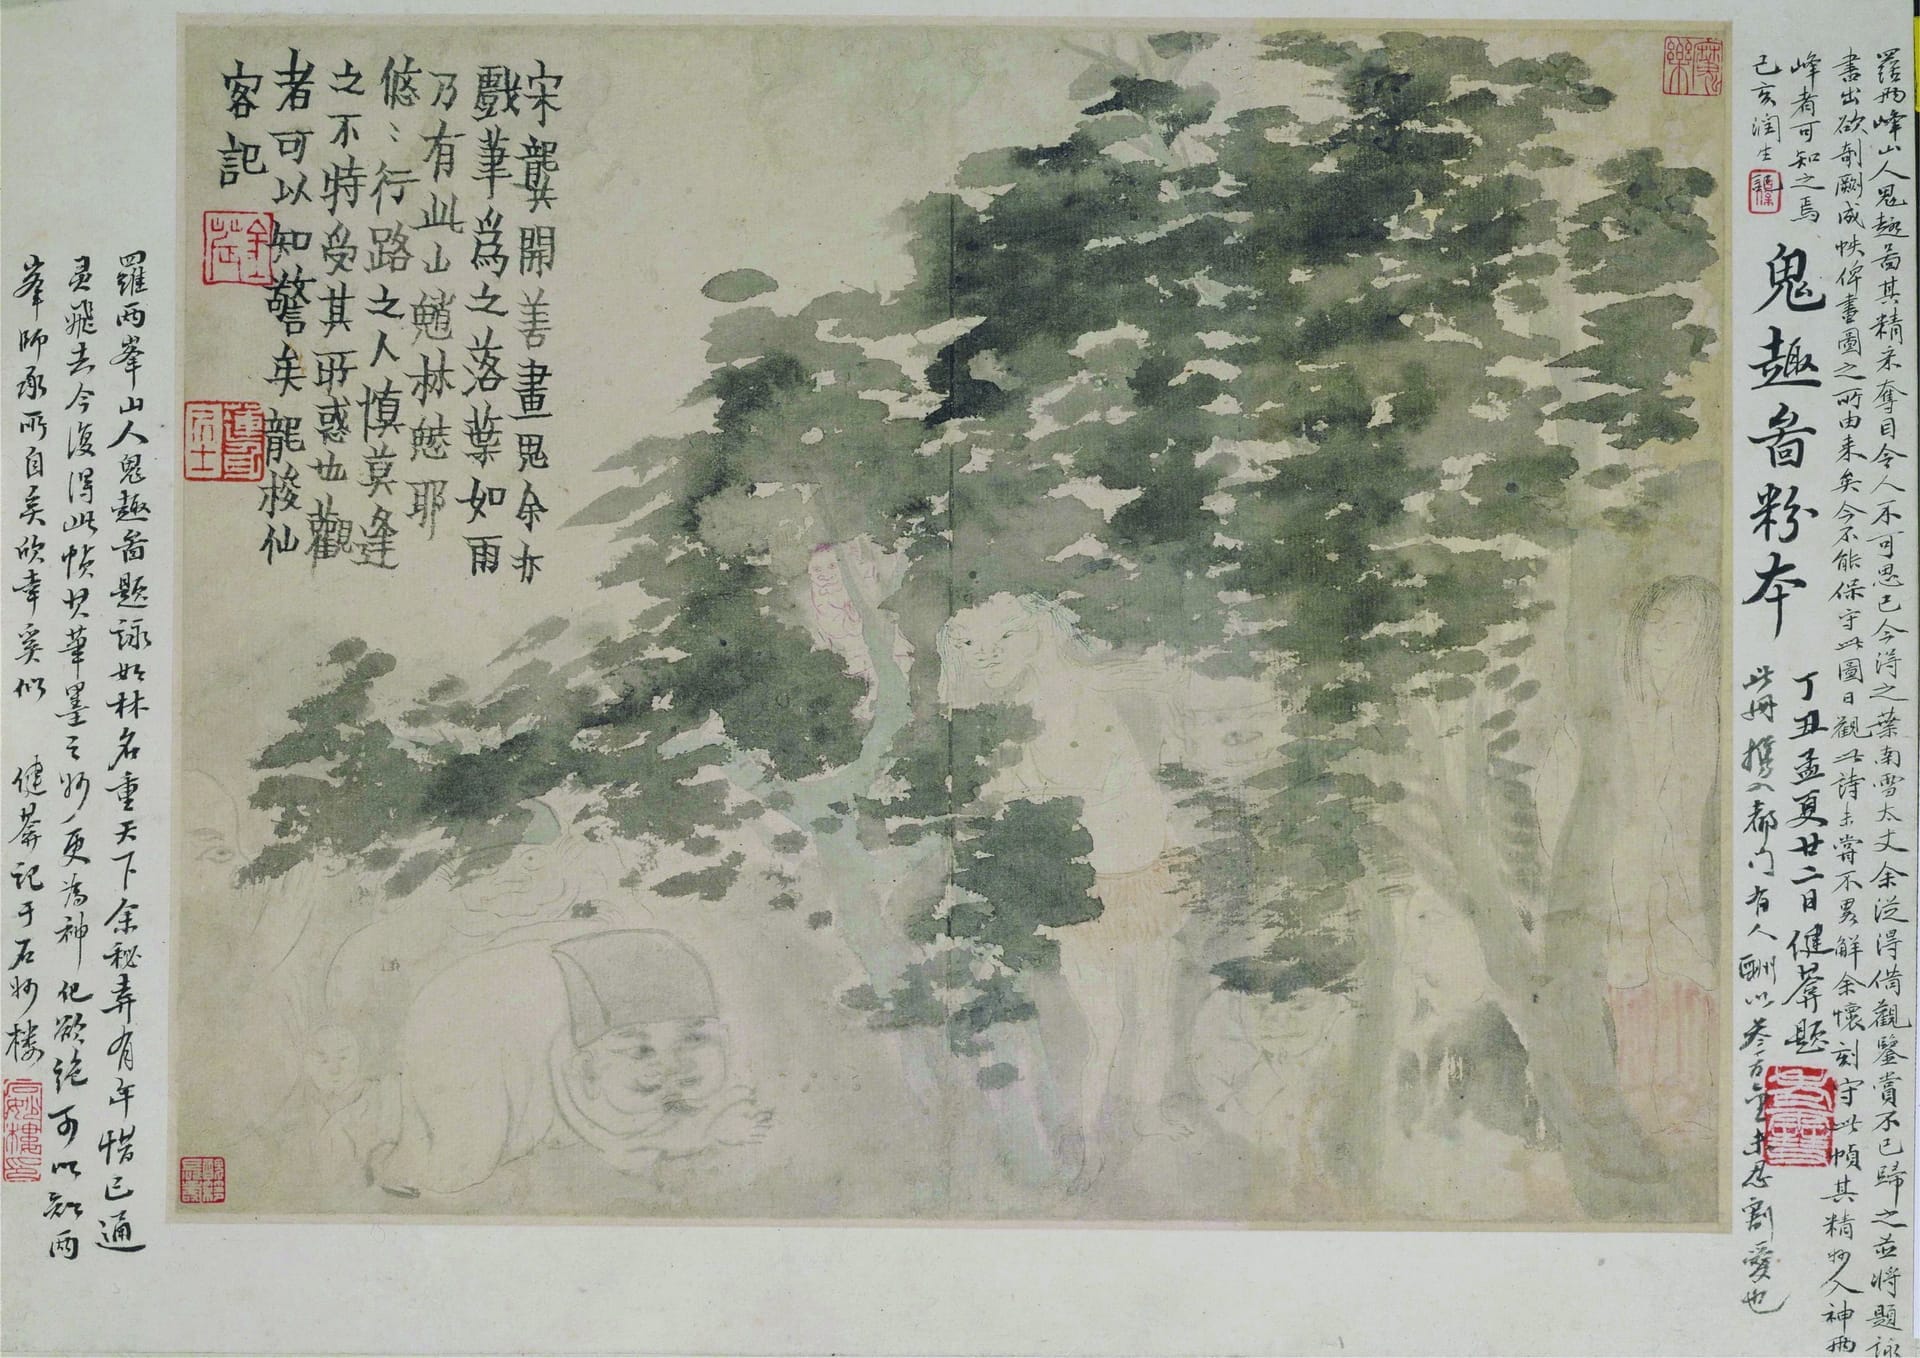 羅兩峰山人鬼趣啚其精采奪目令人不可思已今得之葉南雪太丈余從得借觀鑒賞不已歸之並將題詠
書出欲剞劂成帙俾畫圖之所由来矣今不能保守此圖日觀其詩未嘗不畧解余懷刻守此幀其精妙入神兩
峰者可知之焉
己亥潤生
鬼趣啚粉本
丁丑孟夏廿二日健葊題
此冊攜入都门有人酬以叁百金未忍割愛也
宋龔開善畫鬼余亦
戲筆爲之落葉如雨
乃有此山魈林魅耶
悠〻行路之人慎莫逢
之不特受其所惑也觀
者可以知警矣龍梭仙
客記
羅兩峯山人鬼趣啚題詠如林名重天下余秘弆有年惜已通
靈飛去今復得此幀其筆墨之妙更為神化欲絶可以知兩
峯師承所自矣欣幸奚似
健葊記于石妙楼